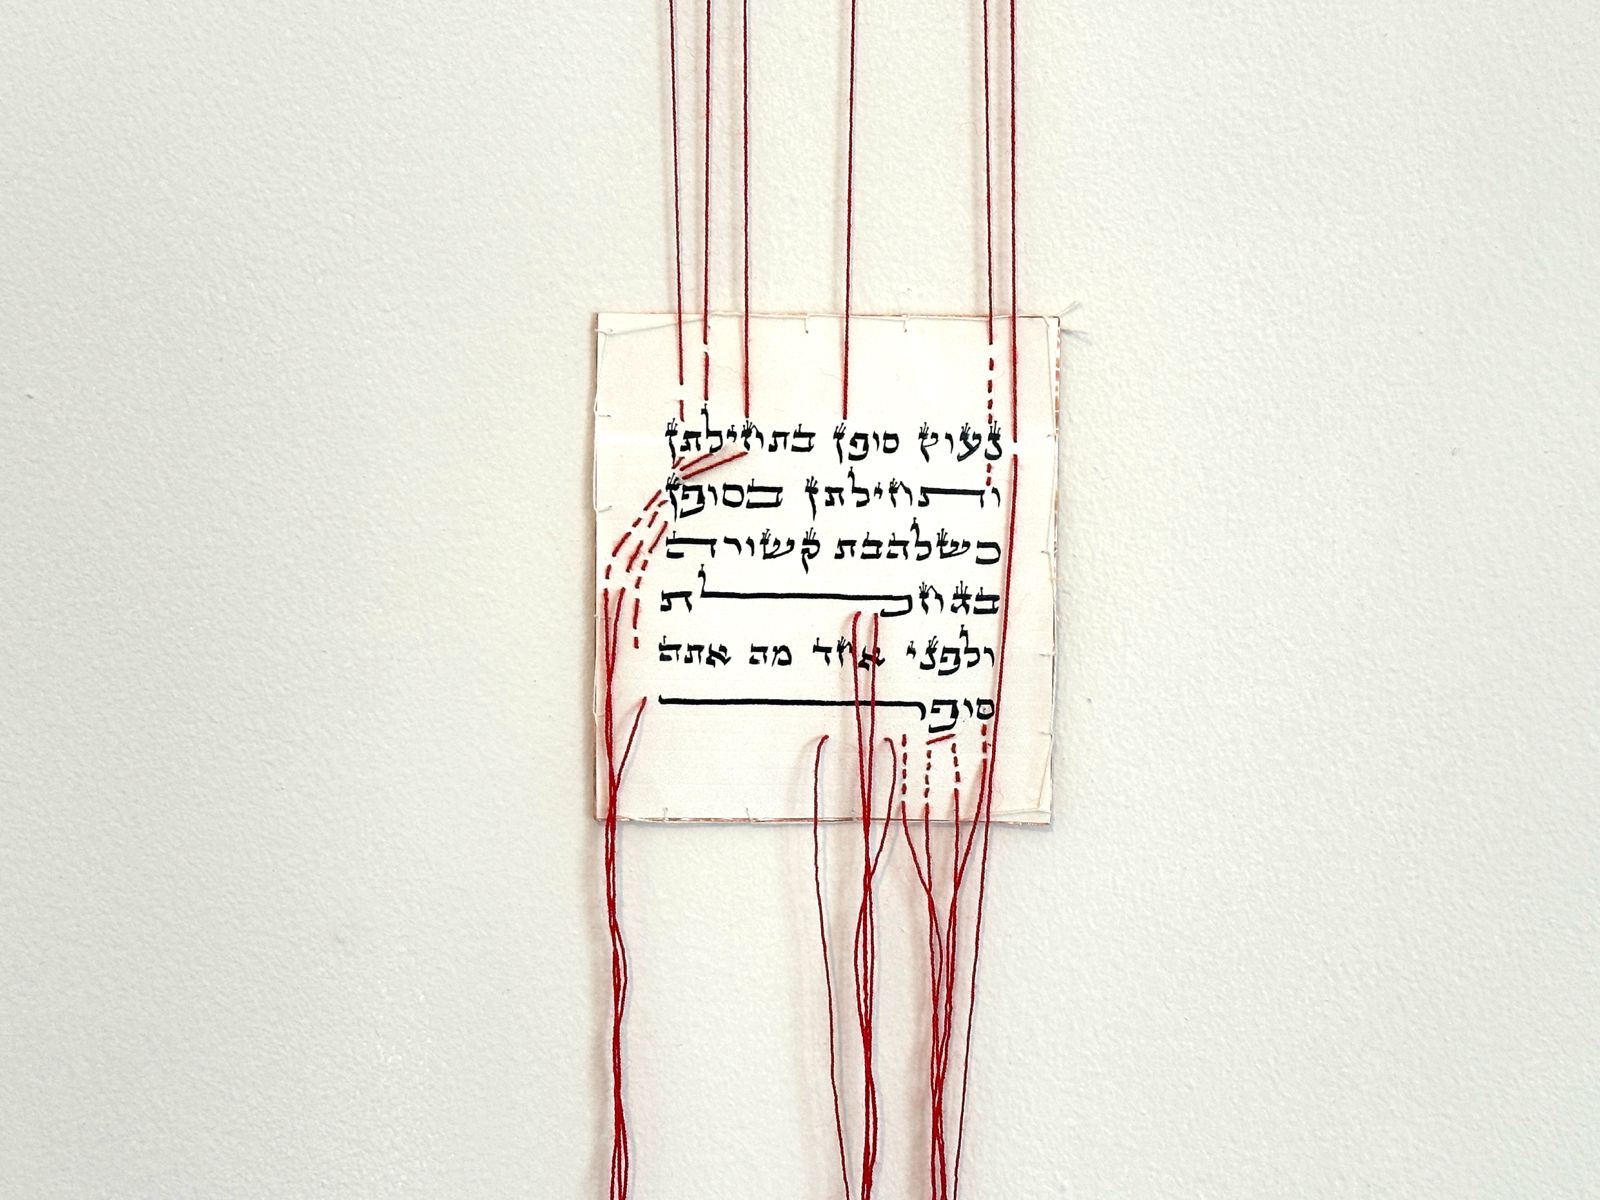 נעוץ סופן בתחילתן
ותחילתן בסופן
כשלהבת קשורה
בגחלת
ולפני אחד מה אתה
סופר